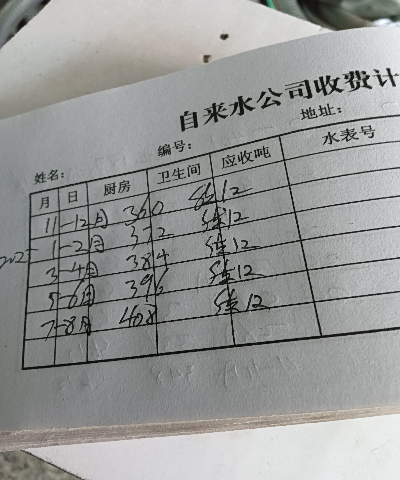 自来水公司收费计
姓名: 编号: 地址:
月 日 厨房 卫生间 应收吨 水表号
11-12月 360 12
2025 1-2月 372 12
3-4月 384 12
5-6月 396 12
7-8月 408 12